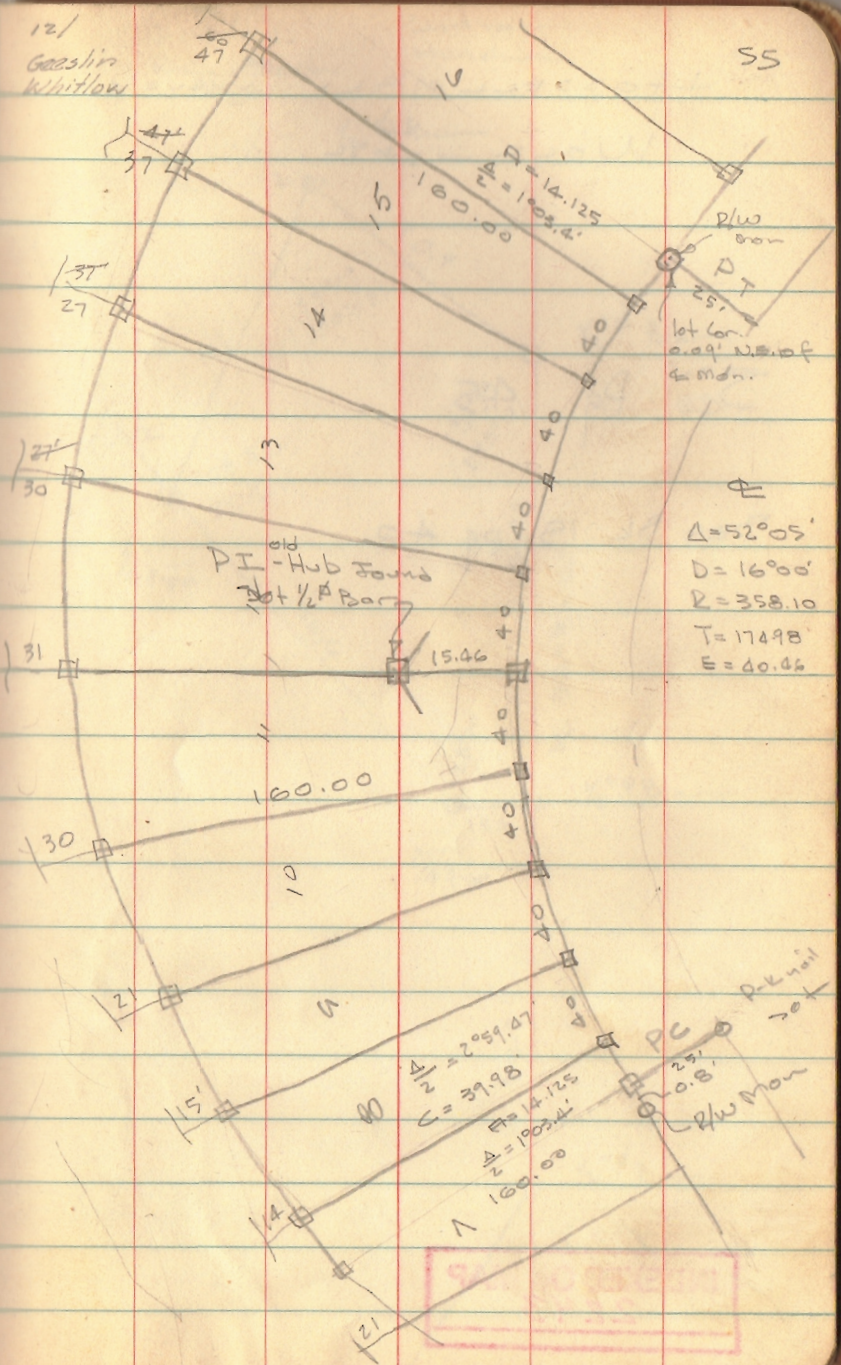 12/
Geeslin
Whitlow
55
60
47
47'
37
37'
27
27'
30
31
30
21
15'
14
21
16
15
14
13
11
10
9
8
7
A = 14.125
Δ/2 = 1°03.4'
160.00
R/W
mon
PT
25'
lot Cor.
0.09' N.E. of
℄ Mon.
40
40
40
40
40
40
40
40
℄
Δ = 52°05'
D = 16°00'
R = 358.10
T = 174.98
E = 40.46
old
PI - Hub found
Set 1/2" Ø Bar
15.46
160.00
Δ/2 = 2°59.47'
C = 39.98
A = 14.125
Δ/2 = 1°03.4'
160.00
PC
P-K nail
set
25'
0.8'
R/W Mon